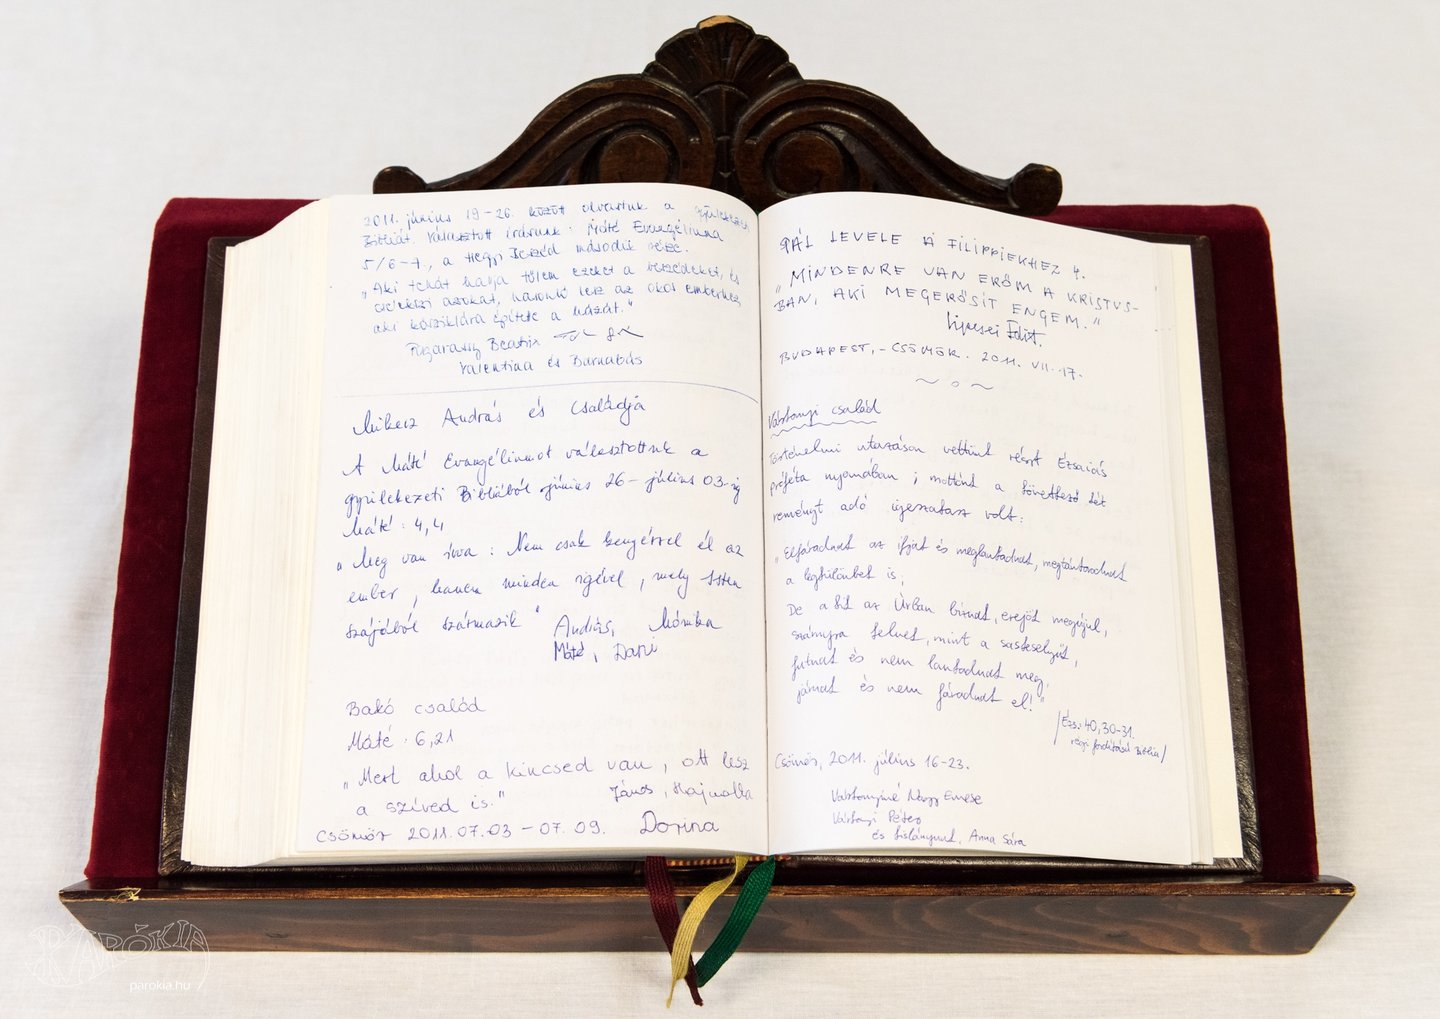 2011. június 19-26. között olvastuk a gyülekezeti
Bibliát. Választott írásunk: Máté Evangéliuma
5/6-7., a Hegyi Beszéd második része.
„Aki tehát hallja tőlem ezeket a beszédeket, és
cselekszi azokat, hasonló lesz az okos emberhez,
aki kősziklára építette a házát."
Fogarassy Beatrix
Valentina és Barnabás
Mikesz András és Családja
A Máté Evangéliumot választottuk a
gyülekezeti Bibliából június 26-július 03-ig
Máté: 4,4
„Meg van írva: Nem csak kenyérrel él az
ember, hanem minden igével, mely Isten
szájából származik"
András, Mónika
Máté, Dani
Bakó család
Máté: 6,21
„Mert ahol a kincsed van, ott lesz
a szíved is." János, Hajnalka
Csömör 2011.07.03-07.09. Dorina
PÁL LEVELE A FILIPPIEKHEZ 4.
„MINDENRE VAN ERŐM A KRISTUS-
BAN, AKI MEGERŐSÍT ENGEM."
Lipcsei Edit.
BUDAPEST,-CSÖMÖR. 2011. VII.17.
~ o ~
Várkonyi család
Történelmi utazáson vettünk részt Ézsaiás
próféta nyomában; mottónk a következő két
reményt adó igeszakasz volt:
„Elfáradnak az ifjak és meglankadnak, megtántorodnak
a legkülönbek is;
De a kik az Úrban bíznak, erejök megújul,
szárnyra kelnek, mint a saskeselyűk,
futnak és nem lankadnak meg,
járnak és nem fáradnak el!"
/Ézs.: 40,30-31.
régi fordítású Biblia/
Csömör, 2011. július 16-23.
Várkonyiné Nagy Emese
Várkonyi Péter
és kislányunk, Anna Sára
PARÓKIA
parokia.hu